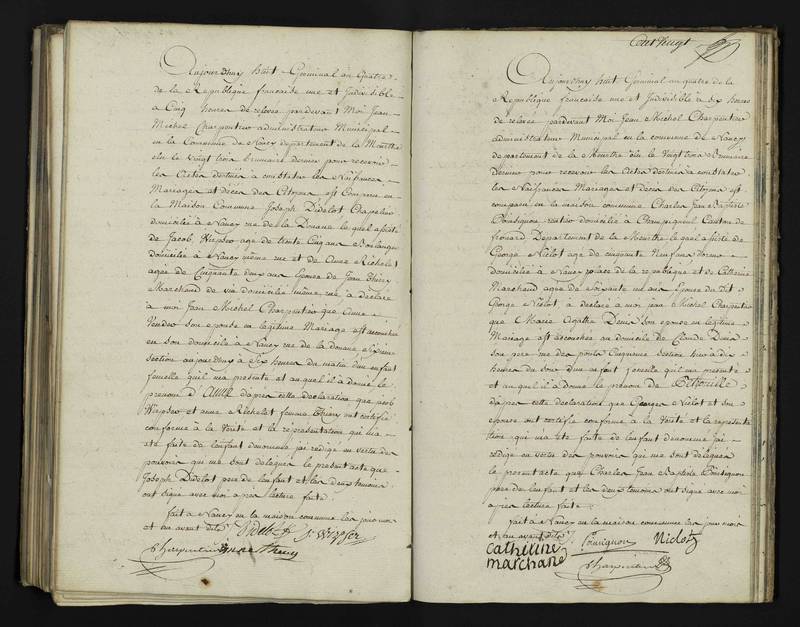 Aujourdhuy huit Germinal an Quatre
de la République francaise une et Indivisible
a Cinq heures de relevée pardevant Moi Jean
Michel Charpentier administrateur Municipal
en la Commune de Nancy departement de la Meurthe
elu le vingt trois brumaire dernier pour recevoir
les Actes destinés a constater les Naissances
Mariages et décès des Citoyens est Comparu en
la Maison Commune Joseph Didelot Chapelier
domicilié a Nancy rue de la Douane le quel assisté
de Jacob Wepser age de trente Cinq ans Boulanger
domicilié a Nancy même rue et de Anne Richelet
agée de Cinquante deux ans Epouse de Jean Thiery
Marchand de vin domicilié même rue, a déclaré
a moi Jean Michel Charpentier que Anne
son epouse en légitime Mariage est accouchée
en son domicile a Nancy rue de la Douane
section aujourdhuy a Six heures du matin d'un enfant
femelle qu'il ma presenté et auquel il a donné le
prenom d'Anne dapres cette declaration que Jacob
Wepser et anne Richelet femme Thiery ont certifié
conforme a la Verité et la representation qui ma
été faite de lenfant denommé jai redigé en vertu des
pouvoirs qui me sont delegués le present acte que
Joseph Didelot pere de lenfant et les deux temoins
ont signé avec moi apres lecture faite
fait a Nancy en la maison commune les jour mois
et an avant dits. Didelot J. Wepser
Charpentier anne Thiery
Cent vingt
Aujourdhuy huit Germinal an quatre de la
République francaise une et Indivisible a six heures
de relevée pardevant Moi Jean Michel Charpentier
administrateur Municipal en la commune de Nancy
departement de la Meurthe élu le Vingt trois Brumaire
dernier pour recevoir les Actes destinés a constater
les Naissances Mariages et décès des Citoyens est
comparu en la maison commune Charles Jean Baptiste
Poinsignon rentier domicilié a Champigneul Canton de
frouard Departement de la Meurthe le quel assisté de
George Niclot age de cinquante Neuf ans
domicilié a Nancy place de la republique et de Catherine
Marchand agée de Soixante un ans Epouse du dit
George Niclot, a déclaré a moi Jean Michel Charpentier
que Marie Agathe Denis son epouse en legitime
Mariage est accouchée au domicile de Claude Denis
son pere rue des ponts Cinquieme Section hier a dix
heures du soir d'un enfant femelle qu'il ma presenté
et au quel il a Donné le prenom de
dapres cette declaration que George Niclot et son
epouse ont certifié conforme a la Verité et la represente
tion qui ma été faite de lenfant denommé jai
redigé en vertu des pouvoirs qui me sont delegués
le present acte que Charles Jean Baptiste Poinsignon
pere de lenfant et les deux temoins ont signé avec moi
apres lecture faite
fait a Nancy en la maison commune les jour mois
et an avant dits. Poinsignon Niclot
catherine
marchane
Charpentier